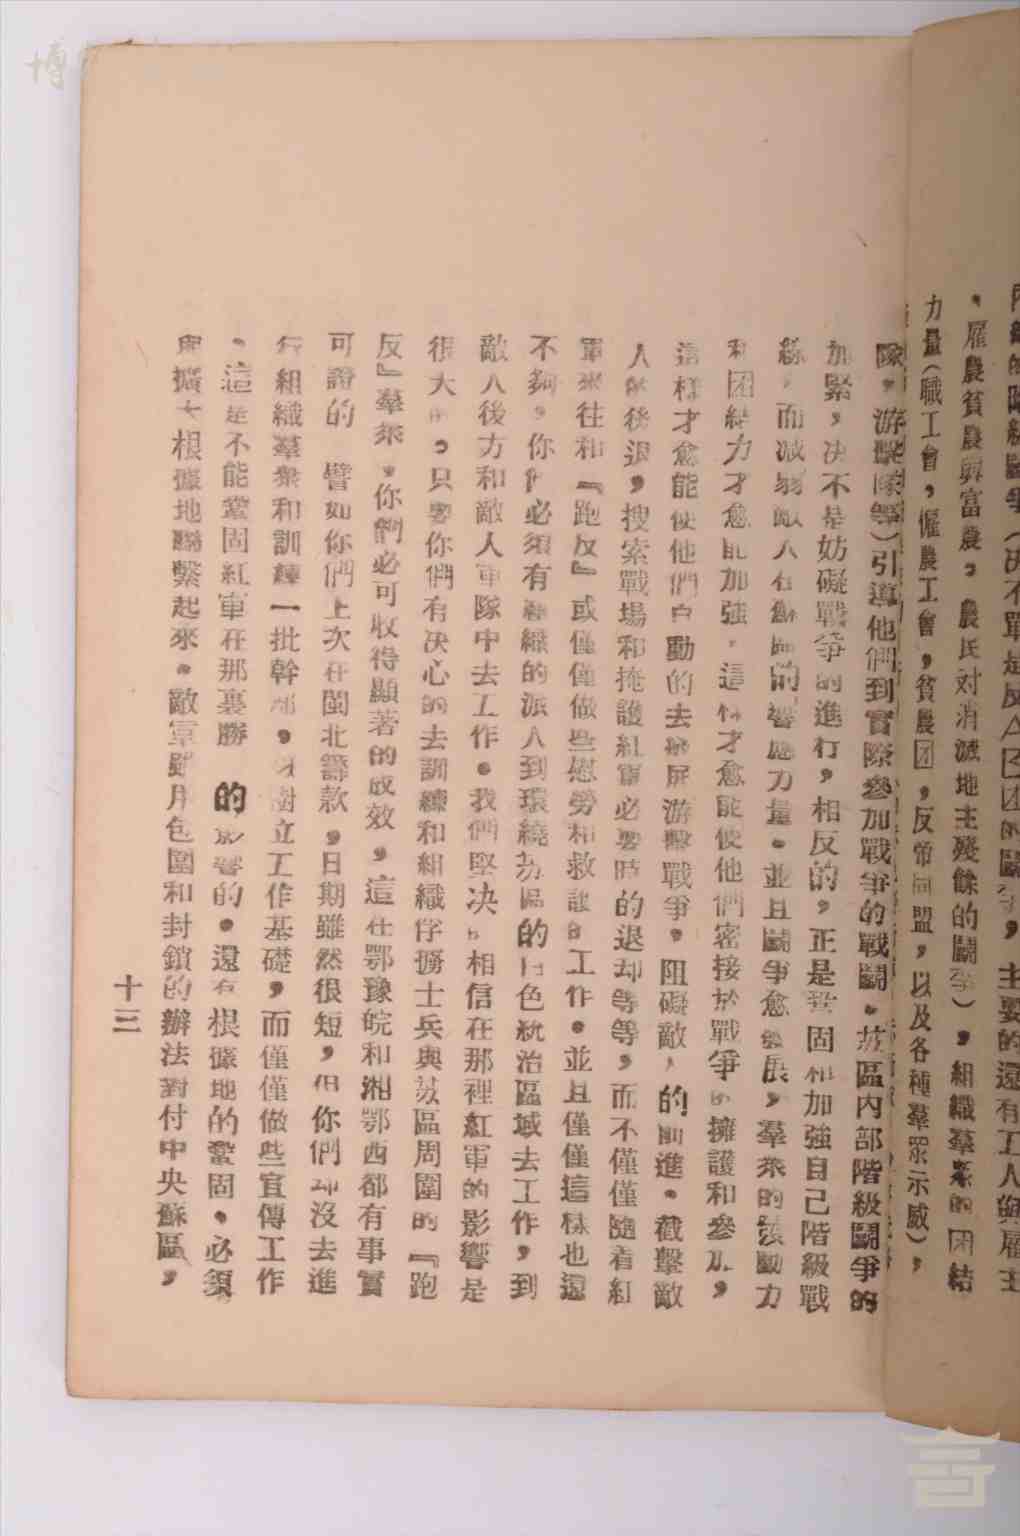 ，雇農貧農與富農，農民对消滅地主殘餘的鬭爭），組織羣衆的团結
力量（職工會，僱農工會，貧農团，反帝同盟，以及各種羣眾示威），
隊，游擊隊等）引導他們到實際參加戰爭的戰鬭。苏區內部階級鬭爭的
加緊，决不是妨礙戰爭的進行，相反的，正是鞏固和加強自己階級戰
綫，而减弱敵人在 的響應力量。並且鬭爭愈發展，羣衆的發動力
和团結力才愈能加強，這樣才愈能使他們密接於戰爭的擁護和參加，
這样才愈能使他們自動的去發展游擊戰爭，阻礙敵 的前進。截擊敵
人的後退，搜索戰場和掩護紅軍必要時的退却等等，而不僅僅隨着紅
軍來往和『跑反』或僅僅做些慰勞和救護的工作。並且僅僅這樣也還
不夠，你們必須有組織的派人到環繞苏區的白色統治區域去工作，到
敵人後方和敵人軍隊中去工作。我們堅决的相信在那裡紅軍的影響是
很大的，只要你們有决心的去訓練和組織俘擄士兵與苏區周圍的『跑
反』羣衆，你們必可收得顯著的成效，這在鄂豫皖和湘鄂西都有事實
可證的 譬如你們上次在閩北籌款，日期雖然很短，但你們却沒去進
行組織羣衆和訓練一批幹部， 樹立工作基礎，而僅僅做些宣傳工作
，這是不能鞏固紅軍在那裏勝 的影響的。還有根據地的鞏固，必須
與擴大根據地聯繫起來。敵軍雖用包圍和封鎖的辦法對付中央蘇區，
十三